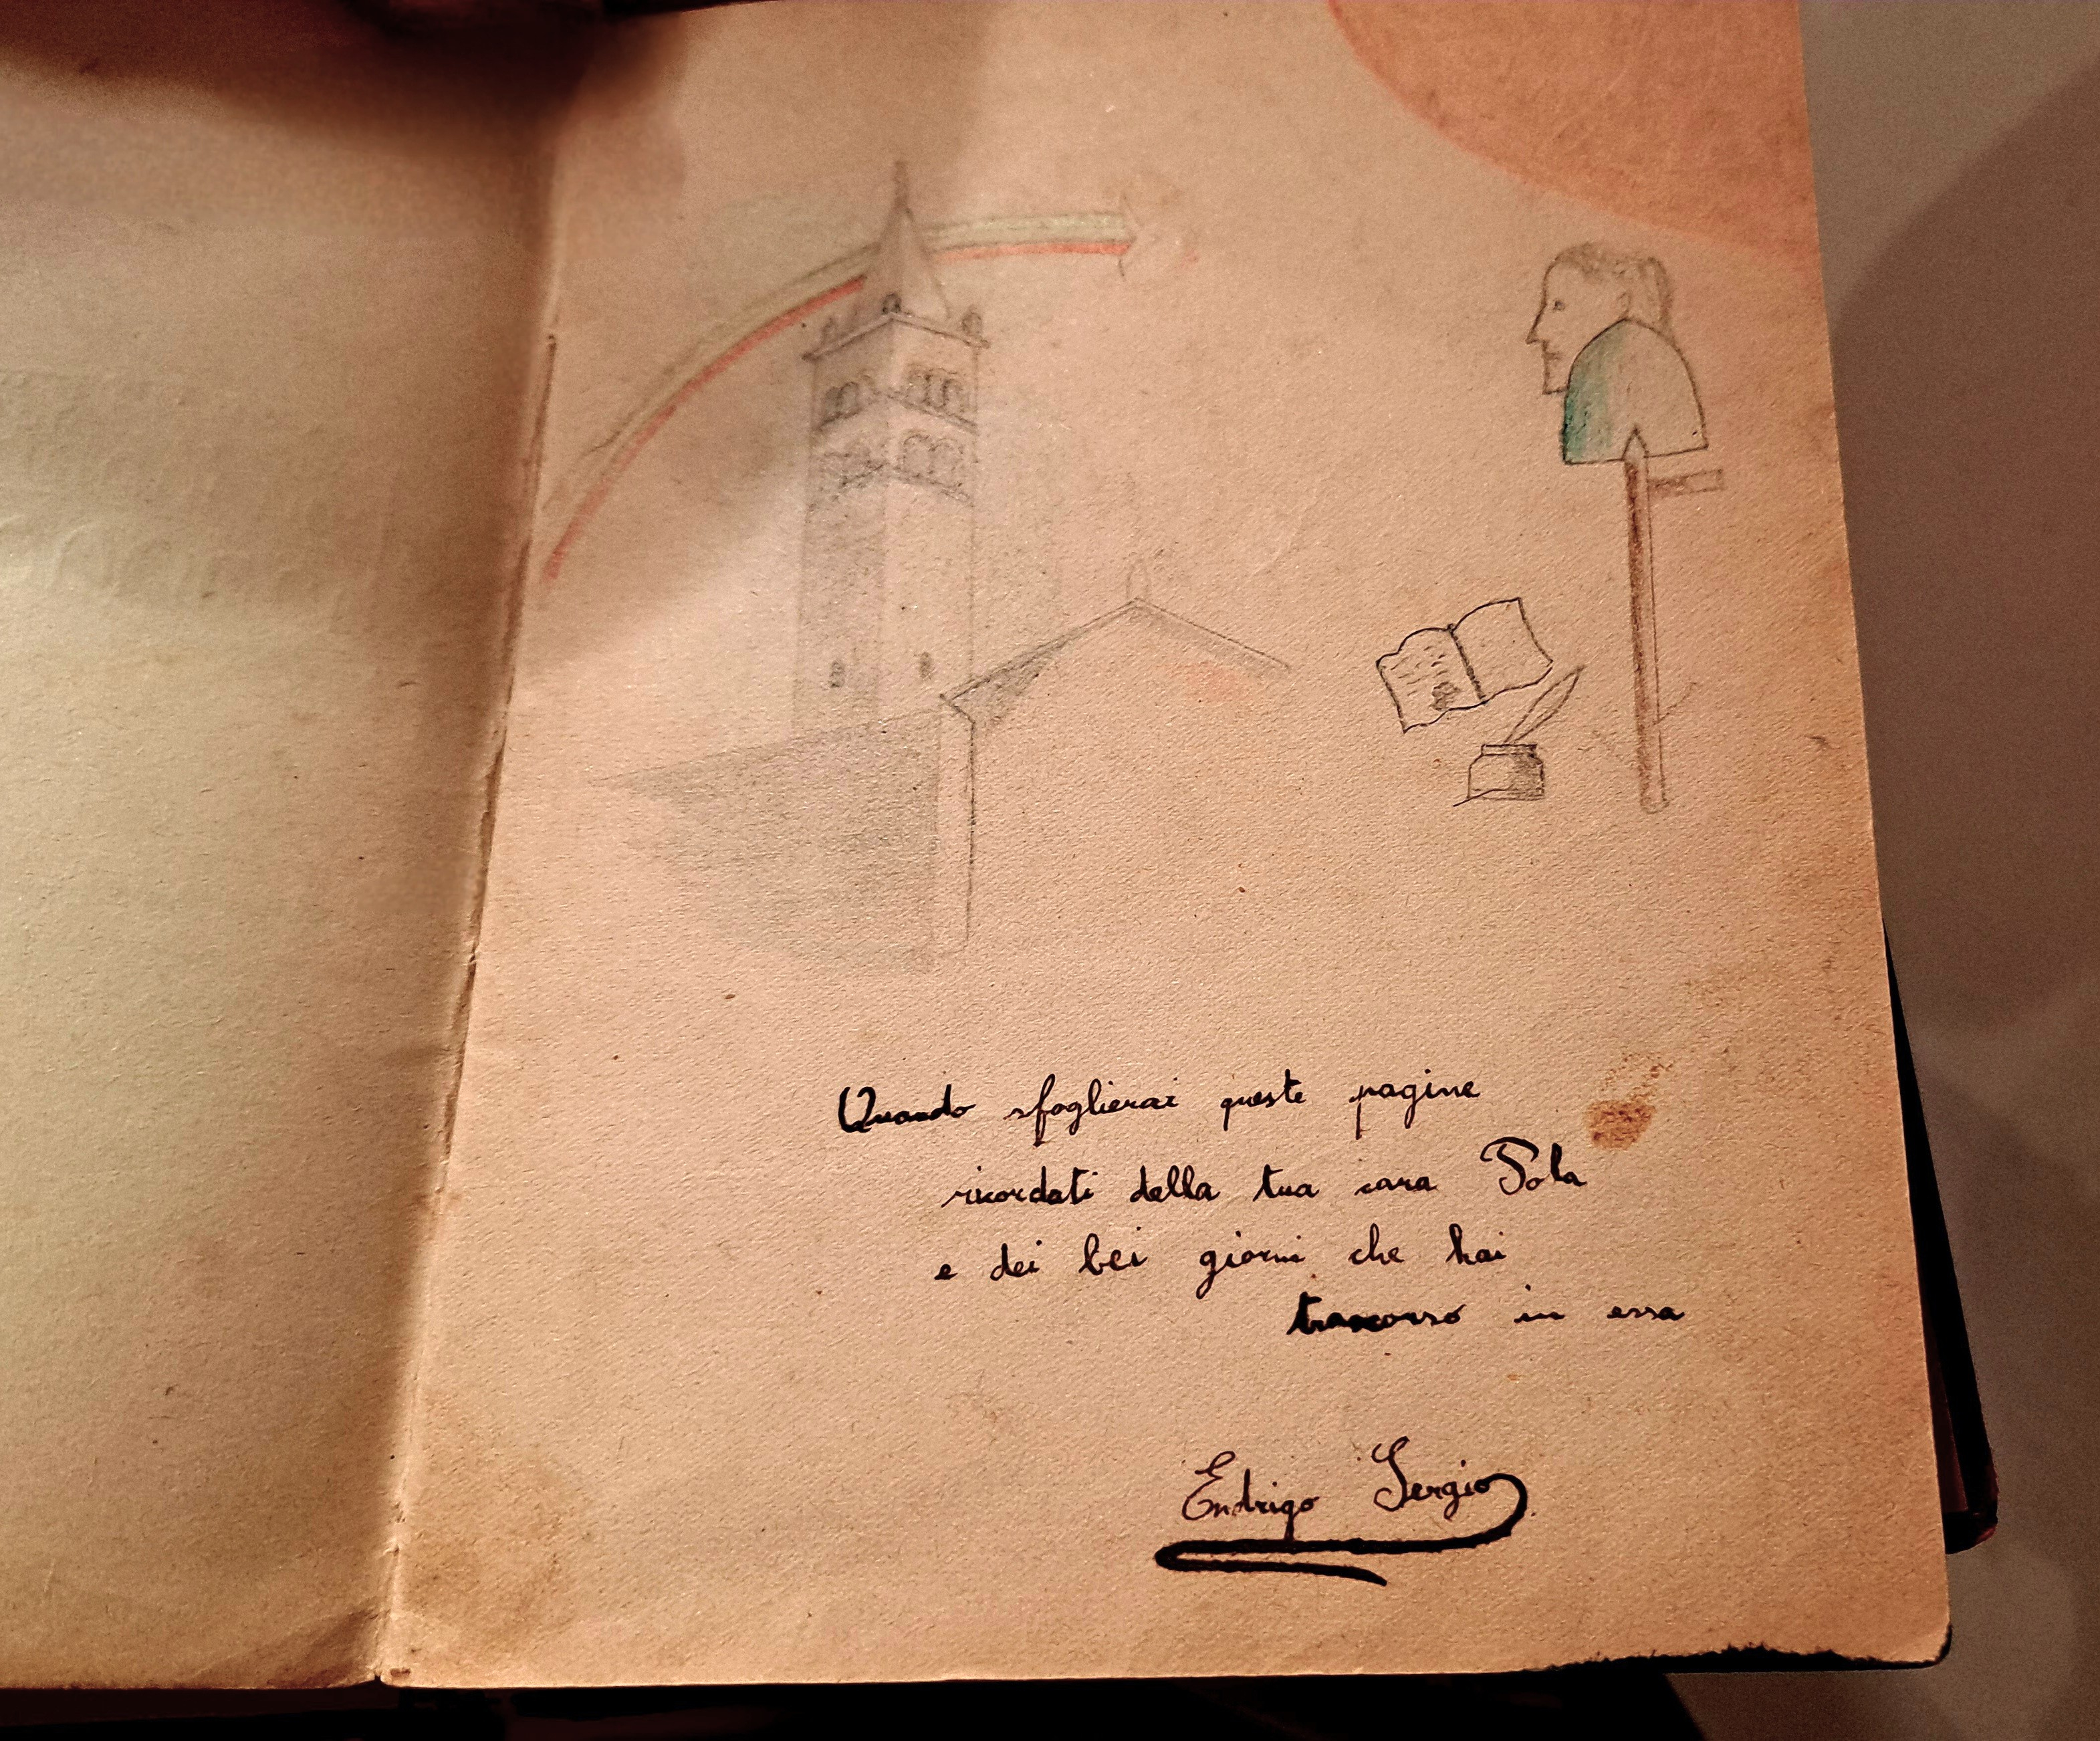 Quando sfoglierai queste pagine
ricordati della tua cara Pola
e dei bei giorni che hai
trascorso in essa
Endrigo Sergio